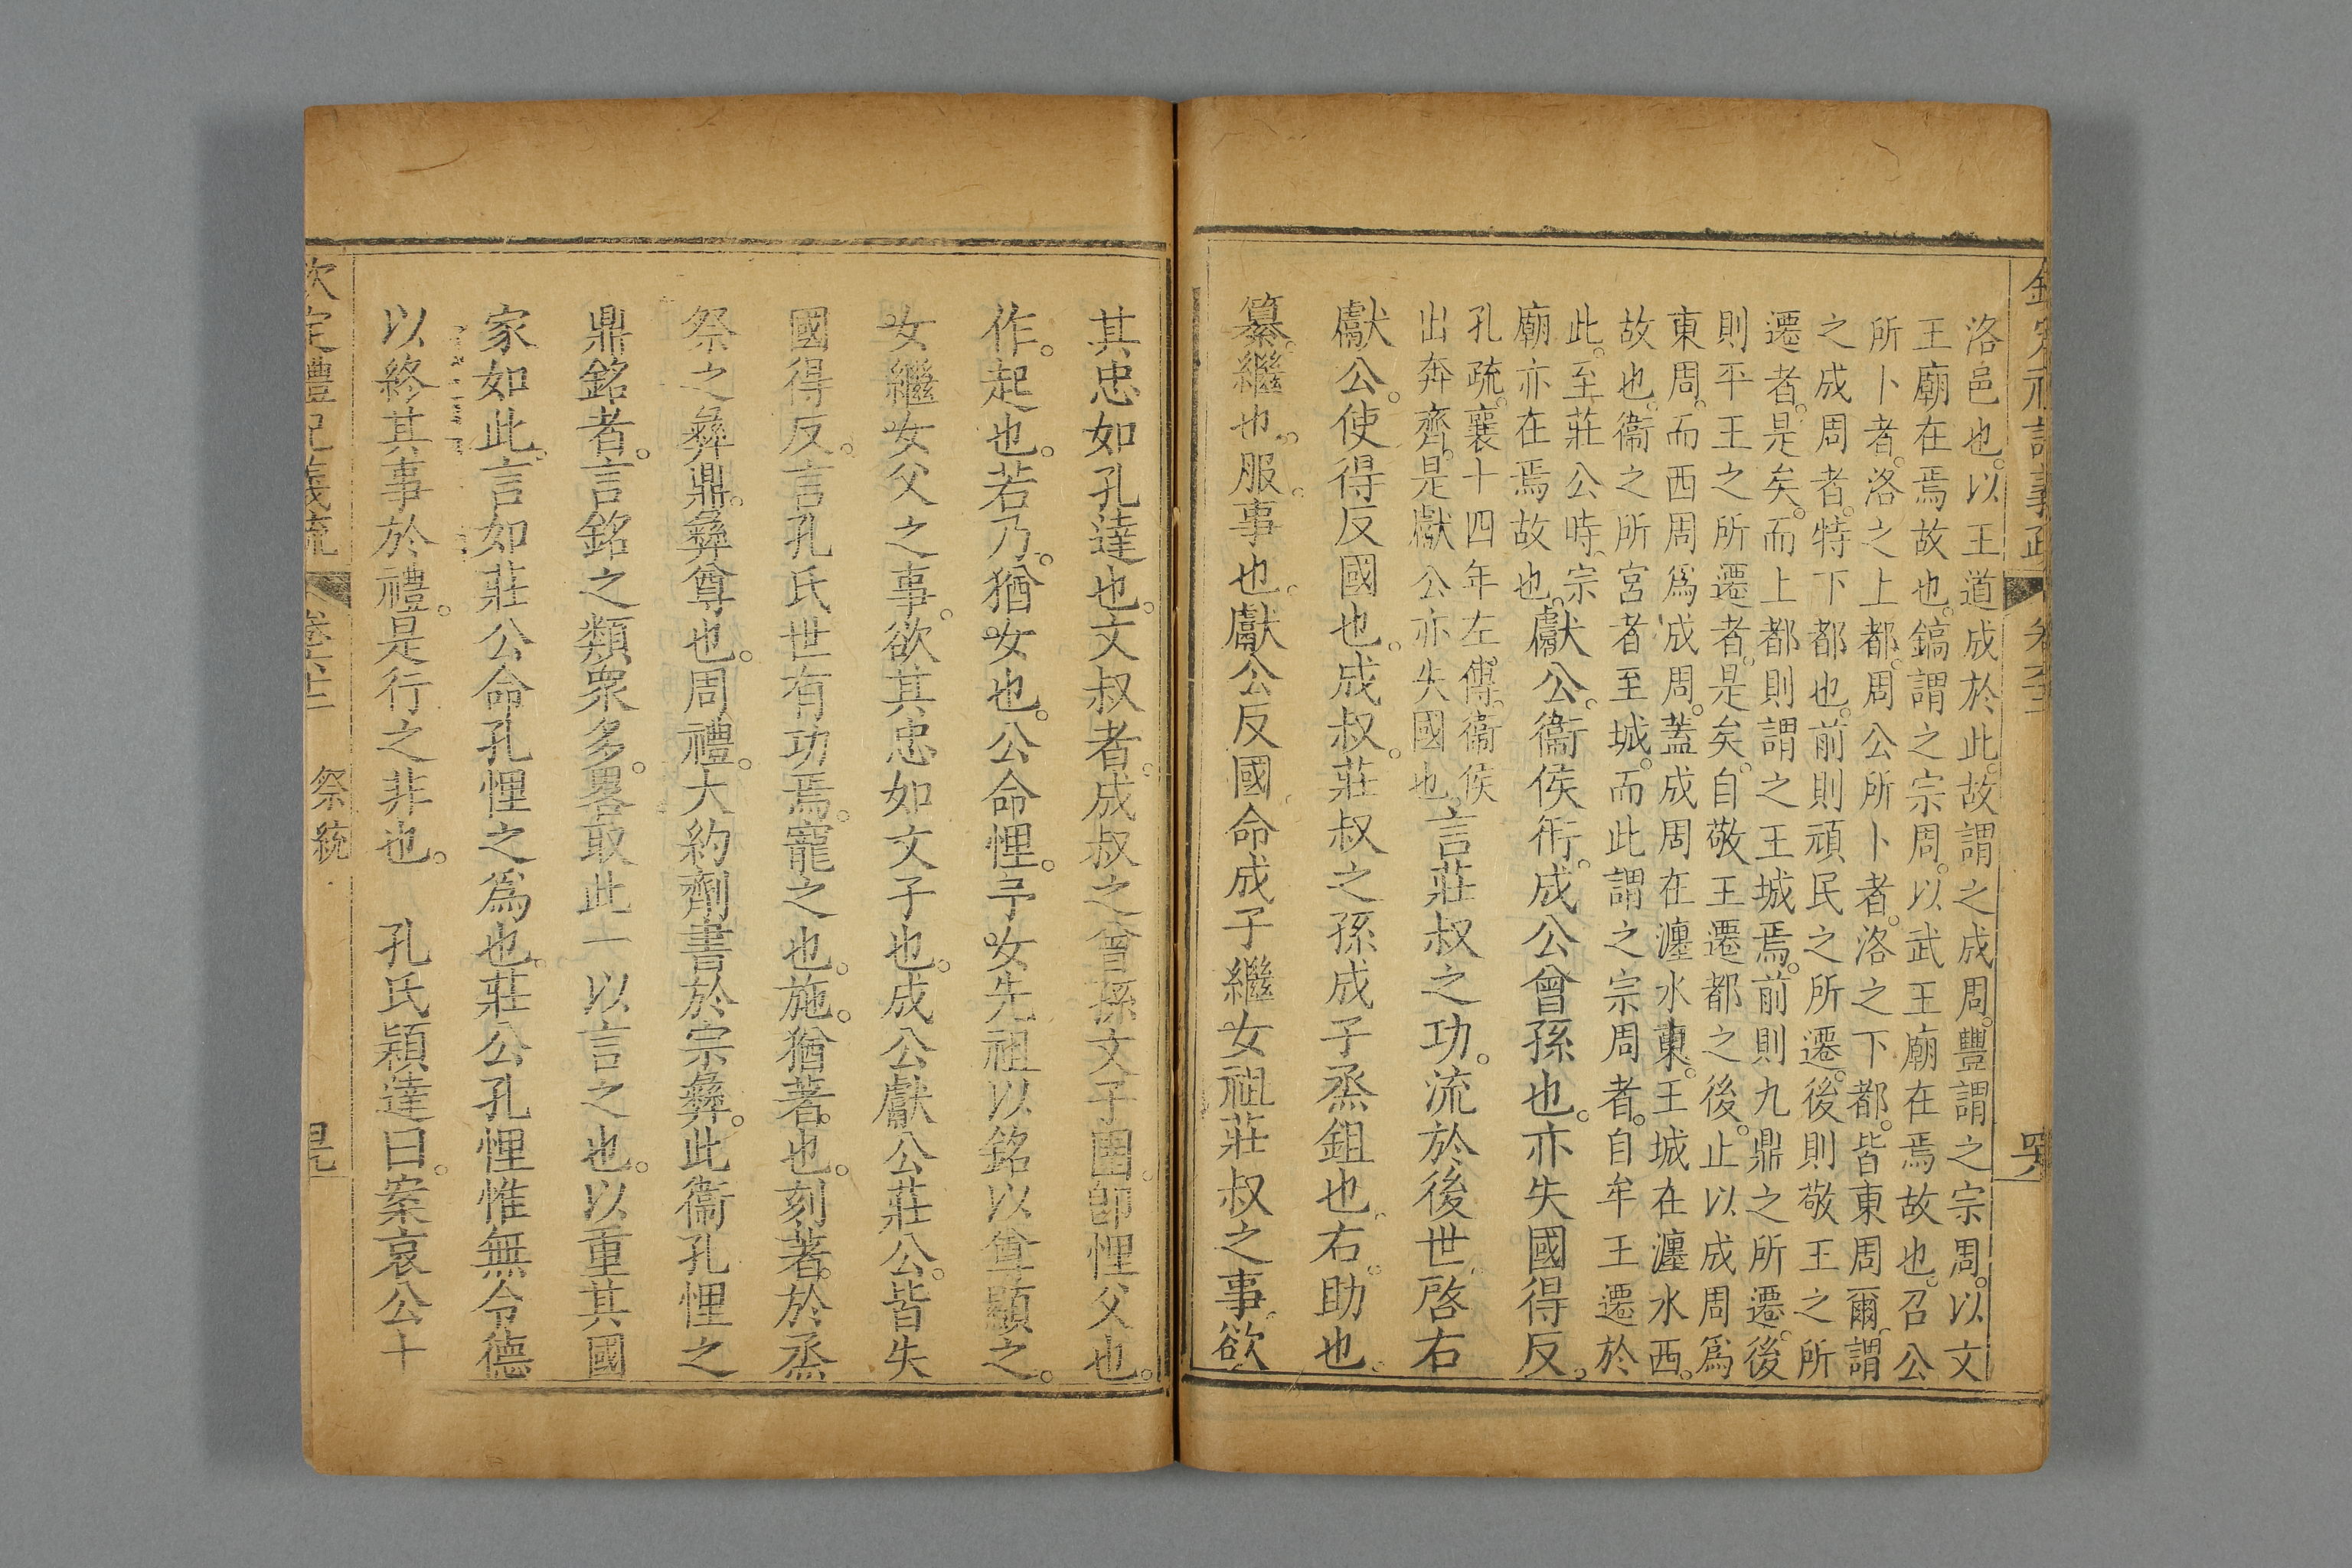 洛邑也以王道成於此故謂之成周豐謂之宗周以文
王廟在焉故也鎬謂之宗周以武王廟在焉故也召公
所卜者洛之上都周公所卜者洛之下都皆東周爾謂
之成周者特下都也前則頑民之所遷後則敬王之所
遷者是矣而上都則謂之王城焉前則九鼎之所遷後
則平王之所遷者是矣自敬王遷都之後止以成周爲
東周而西周爲成周蓋成周在瀍水東王城在瀍水西
故也衞之所宮者至城而此謂之宗周者自牟王遷於
此至莊公時宗
廟亦在焉故也獻公衞侯衎成公曾孫也亦失國得反
孔疏襄十四年左傳衞侯
出奔齊是獻公亦失國也言莊叔之功流於後世啓右
獻公使得反國也成叔莊叔之孫成子烝鉏也右助也
纂繼也服事也獻公反國命成子繼女祖莊叔之事欲
其忠如孔達也文叔者成叔之曾孫文子圉卽悝父也
作起也若乃猶女也公命悝予女先祖以銘以尊顯之
女繼女父之事欲其忠如文子也成公獻公莊公皆失
國得反言孔氏世有功焉寵之也施猶著也刻著於烝
祭之彝鼎彝尊也周禮大約劑書於宗彝此衞孔悝之
鼎銘者言銘之類衆多畧取此一以言之也以重其國
家如此言如莊公命孔悝之爲也莊公孔悝惟無令德
以終其事於禮是行之非也　孔氏穎達曰案哀公十
欽定禮記義疏
祭統